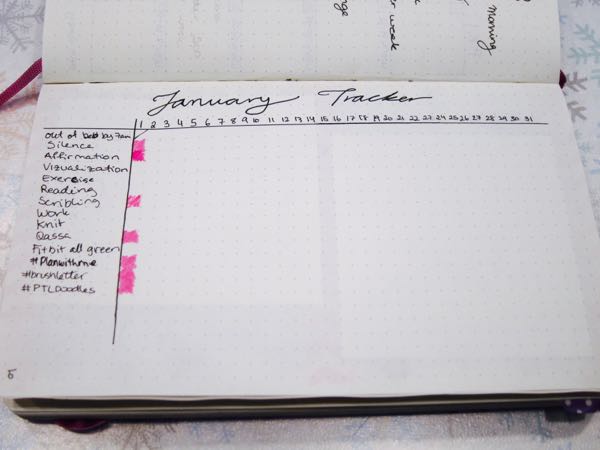 Morning
er week
nge
January Tracker
1 2 3 4 5 6 7 8 9 10 11 12 13 14 15 16 17 18 19 20 21 22 23 24 25 26 27 28 29 30 31
out of bed by 7am
Silence
Affirmation
Vizualization
Exercise
Reading
Scribling
Work
Knit
Qassa
Fitbit all green
#Planwithme
#brushletter
#PTLDoodles
5